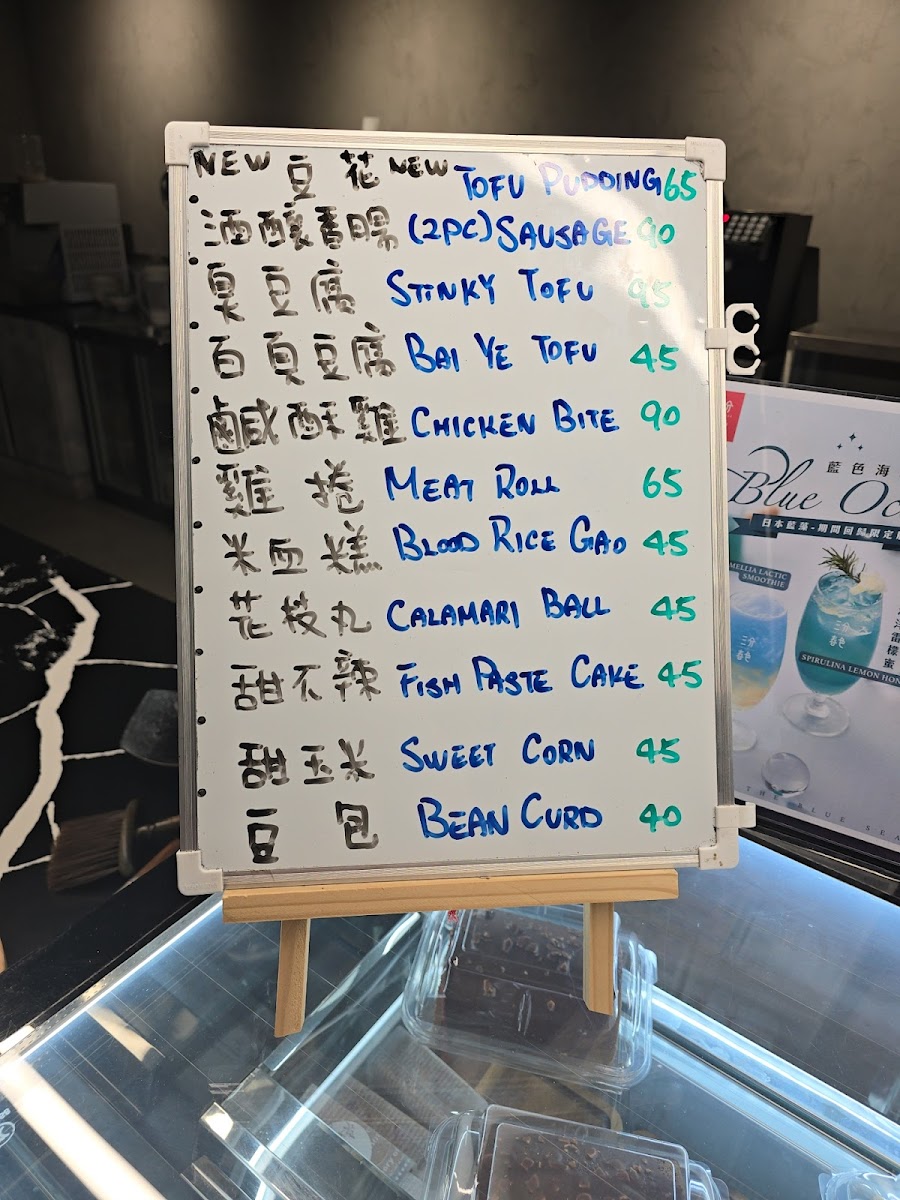 NEW 豆花 NEW TOFU PUDDING 65
酒釀香腸 (2PC) SAUSAGE 90
臭豆腐 STINKY TOFU 95
百頁豆腐 BAI YE TOFU 45
鹹酥雞 CHICKEN BITE 90
雞捲 MEAT ROLL 65
米血糕 BLOOD RICE GAO 45
花枝丸 CALAMARI BALL 45
甜不辣 FISH PASTE CAKE 45
甜玉米 SWEET CORN 45
豆包 BEAN CURD 40
藍色海
Blue Oc
日本藍藻-期間回歸限定
MELLIA LACTIC
SMOOTHIE
三分
春色
三分
春色
SPIRULINA LEMON HON
THE BLUE SEA